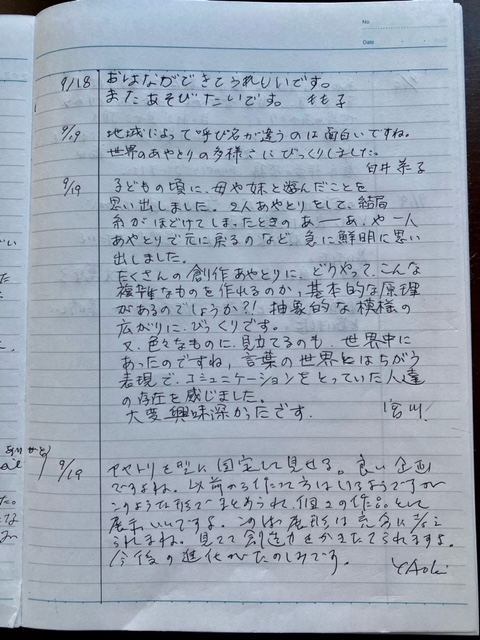 No.
Date
9/18 おはなができてうれしいです。
またあそびたいです。 もも子
9/9 地域によって呼び名が違うのは面白いですね。
世界のあやとりの多様さにびっくりしました。
白井 恭子
9/19 子どもの頃に、母や妹と遊んだことを
思い出しました。2人あやとりをして、結局
糸がほどけてしまったときの、あーーあ、や一人
あやとりで元に戻るのなど、急に鮮明に思い
出しました。
たくさんの創作あやとりに、どうやって、こんな
複雑なものを作れるのか、基本的な原理
があるのでしょうか?! 抽象的な模様の
広がりに、びっくりです。
又、色々なものに、見立てるのも、世界中に
あったのですね、言葉の世界とはちがう
表現で、コミュニケーションをとっていた人達
の存在を感じました。
大変興味深かったです. 宮川.
9/19 アヤトリを型に固定して見せる。良い企画
ですよね。以前のる作って方はいるようですが
このような形でまとめられ、個々の作品として
展示いいですよ。
られますね。見てて創造力をかきたてられますよ。
今後の進化がたのしみです。 Y Aoki